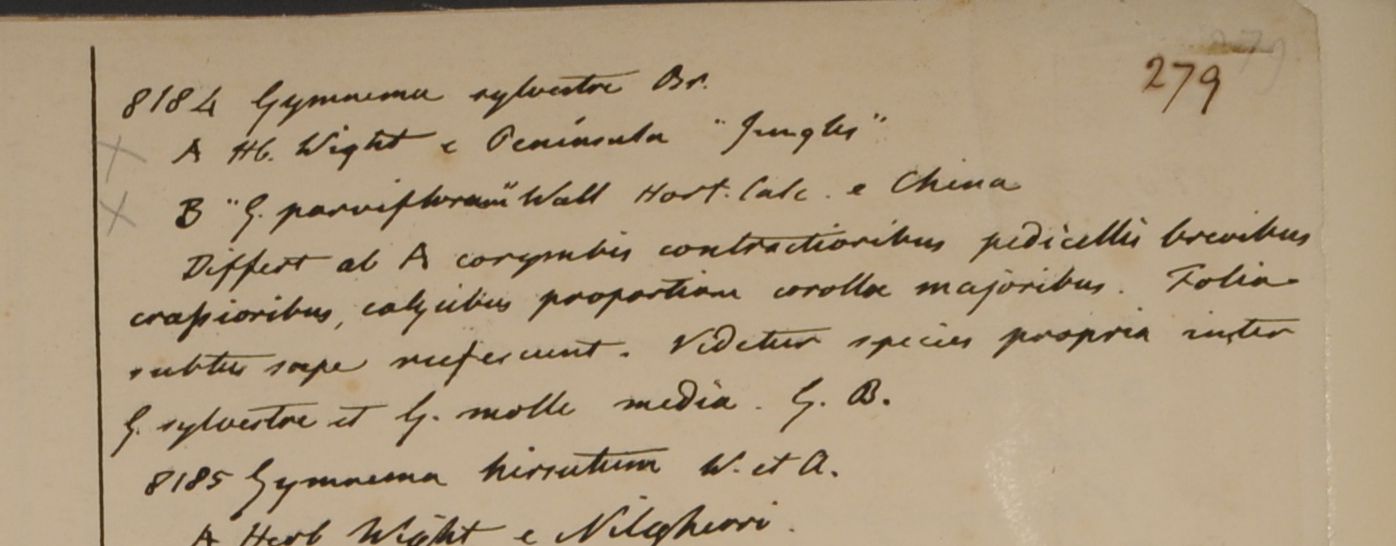 279
8184 Gymnema sylvestre Br.
A Hb. Wight e Peninsula "Junglis"
B "G. parviflorum" Wall Hort. Calc. e China
Differt ab A corymbis contractioribus pedicellis brevibus
crassioribus, calycibus proportione corollae majoribus. Folia
subtus saepe rufescunt. Videtur species propria inter
G. sylvestre et G. molle media. G. B.
8185 Gymnema hirsutum W. et A.
A Herb Wight e Nilgherri.